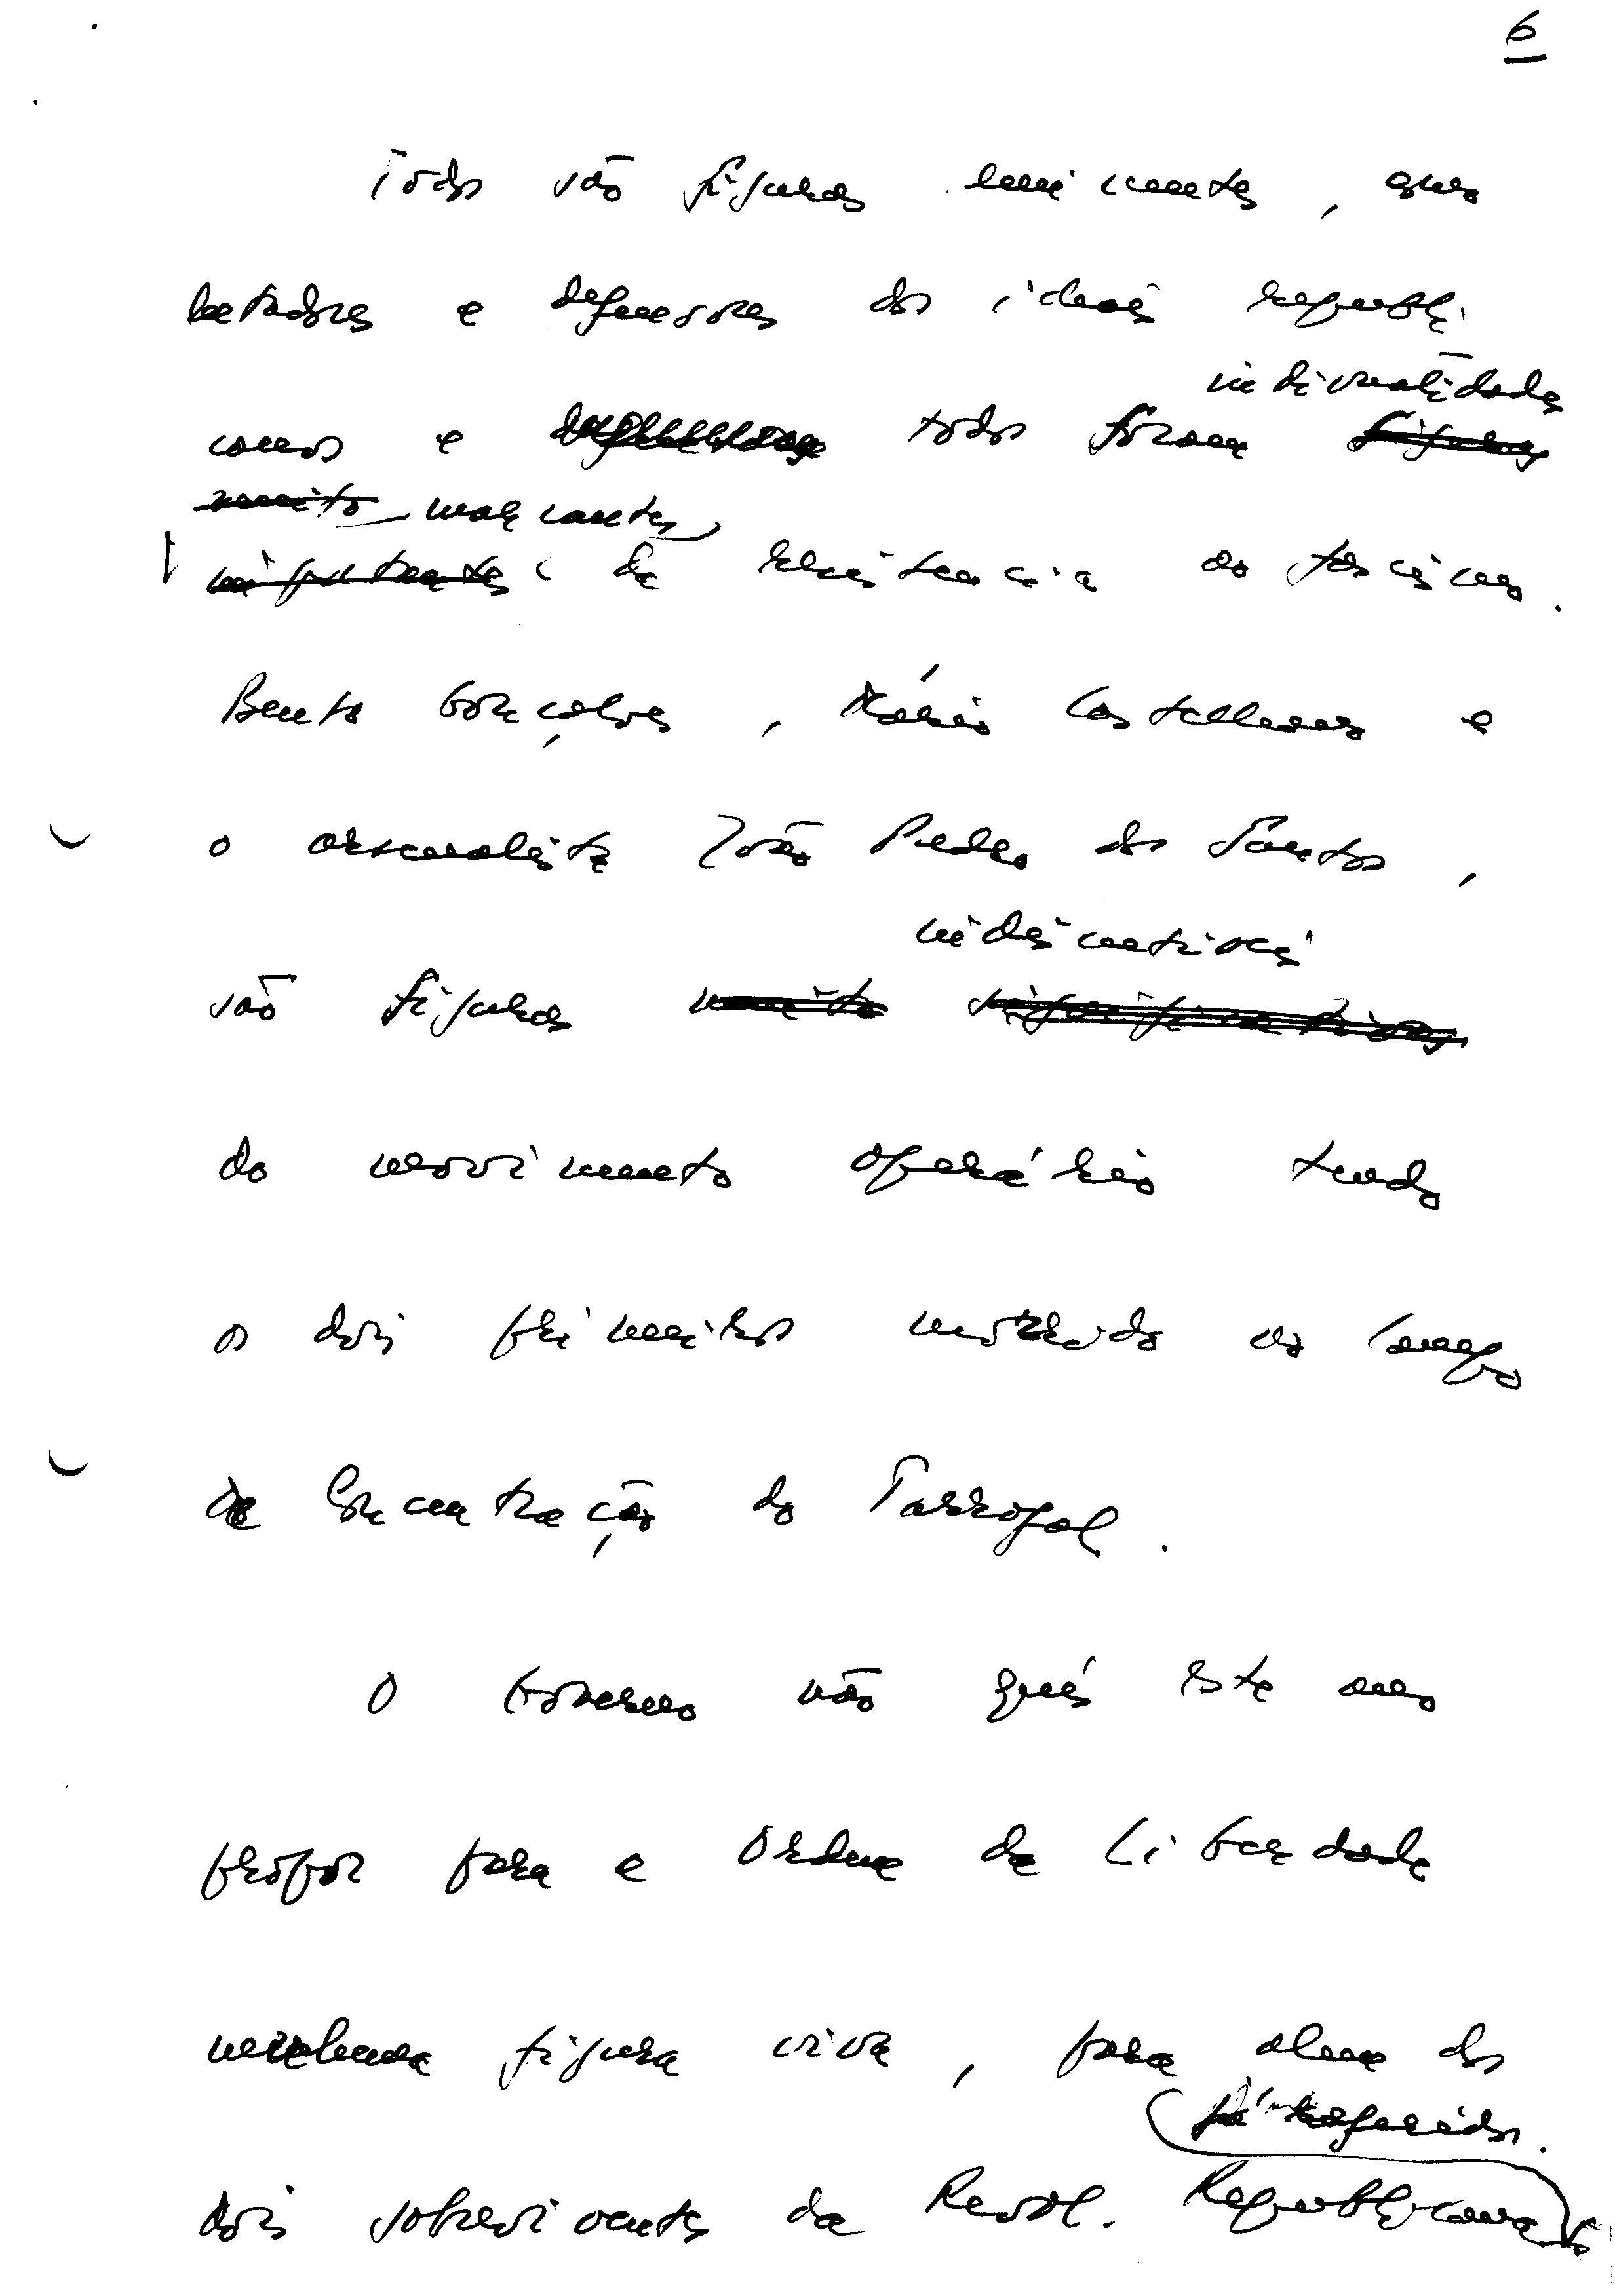 6
Todos são figuras eminentes,
lutadores e defensores dos ideais republi
canos e todos foram individualidades figuras
muito marcantes
importantes da resistência ao fascismo.
Bento Gonçalves, Mário Castelhano e
o arsenalista João Pedro dos Santos,
são figuras muito significativas
do movimento operário tendo
os dois primeiros morrido no Campo
de Concentração do Tarrafal.
O Governo não quis este ano
propor para a Ordem da Liberdade
nenhuma figura viva, para além dos
já referidos.
dois sobreviventes da Revol. Republicana